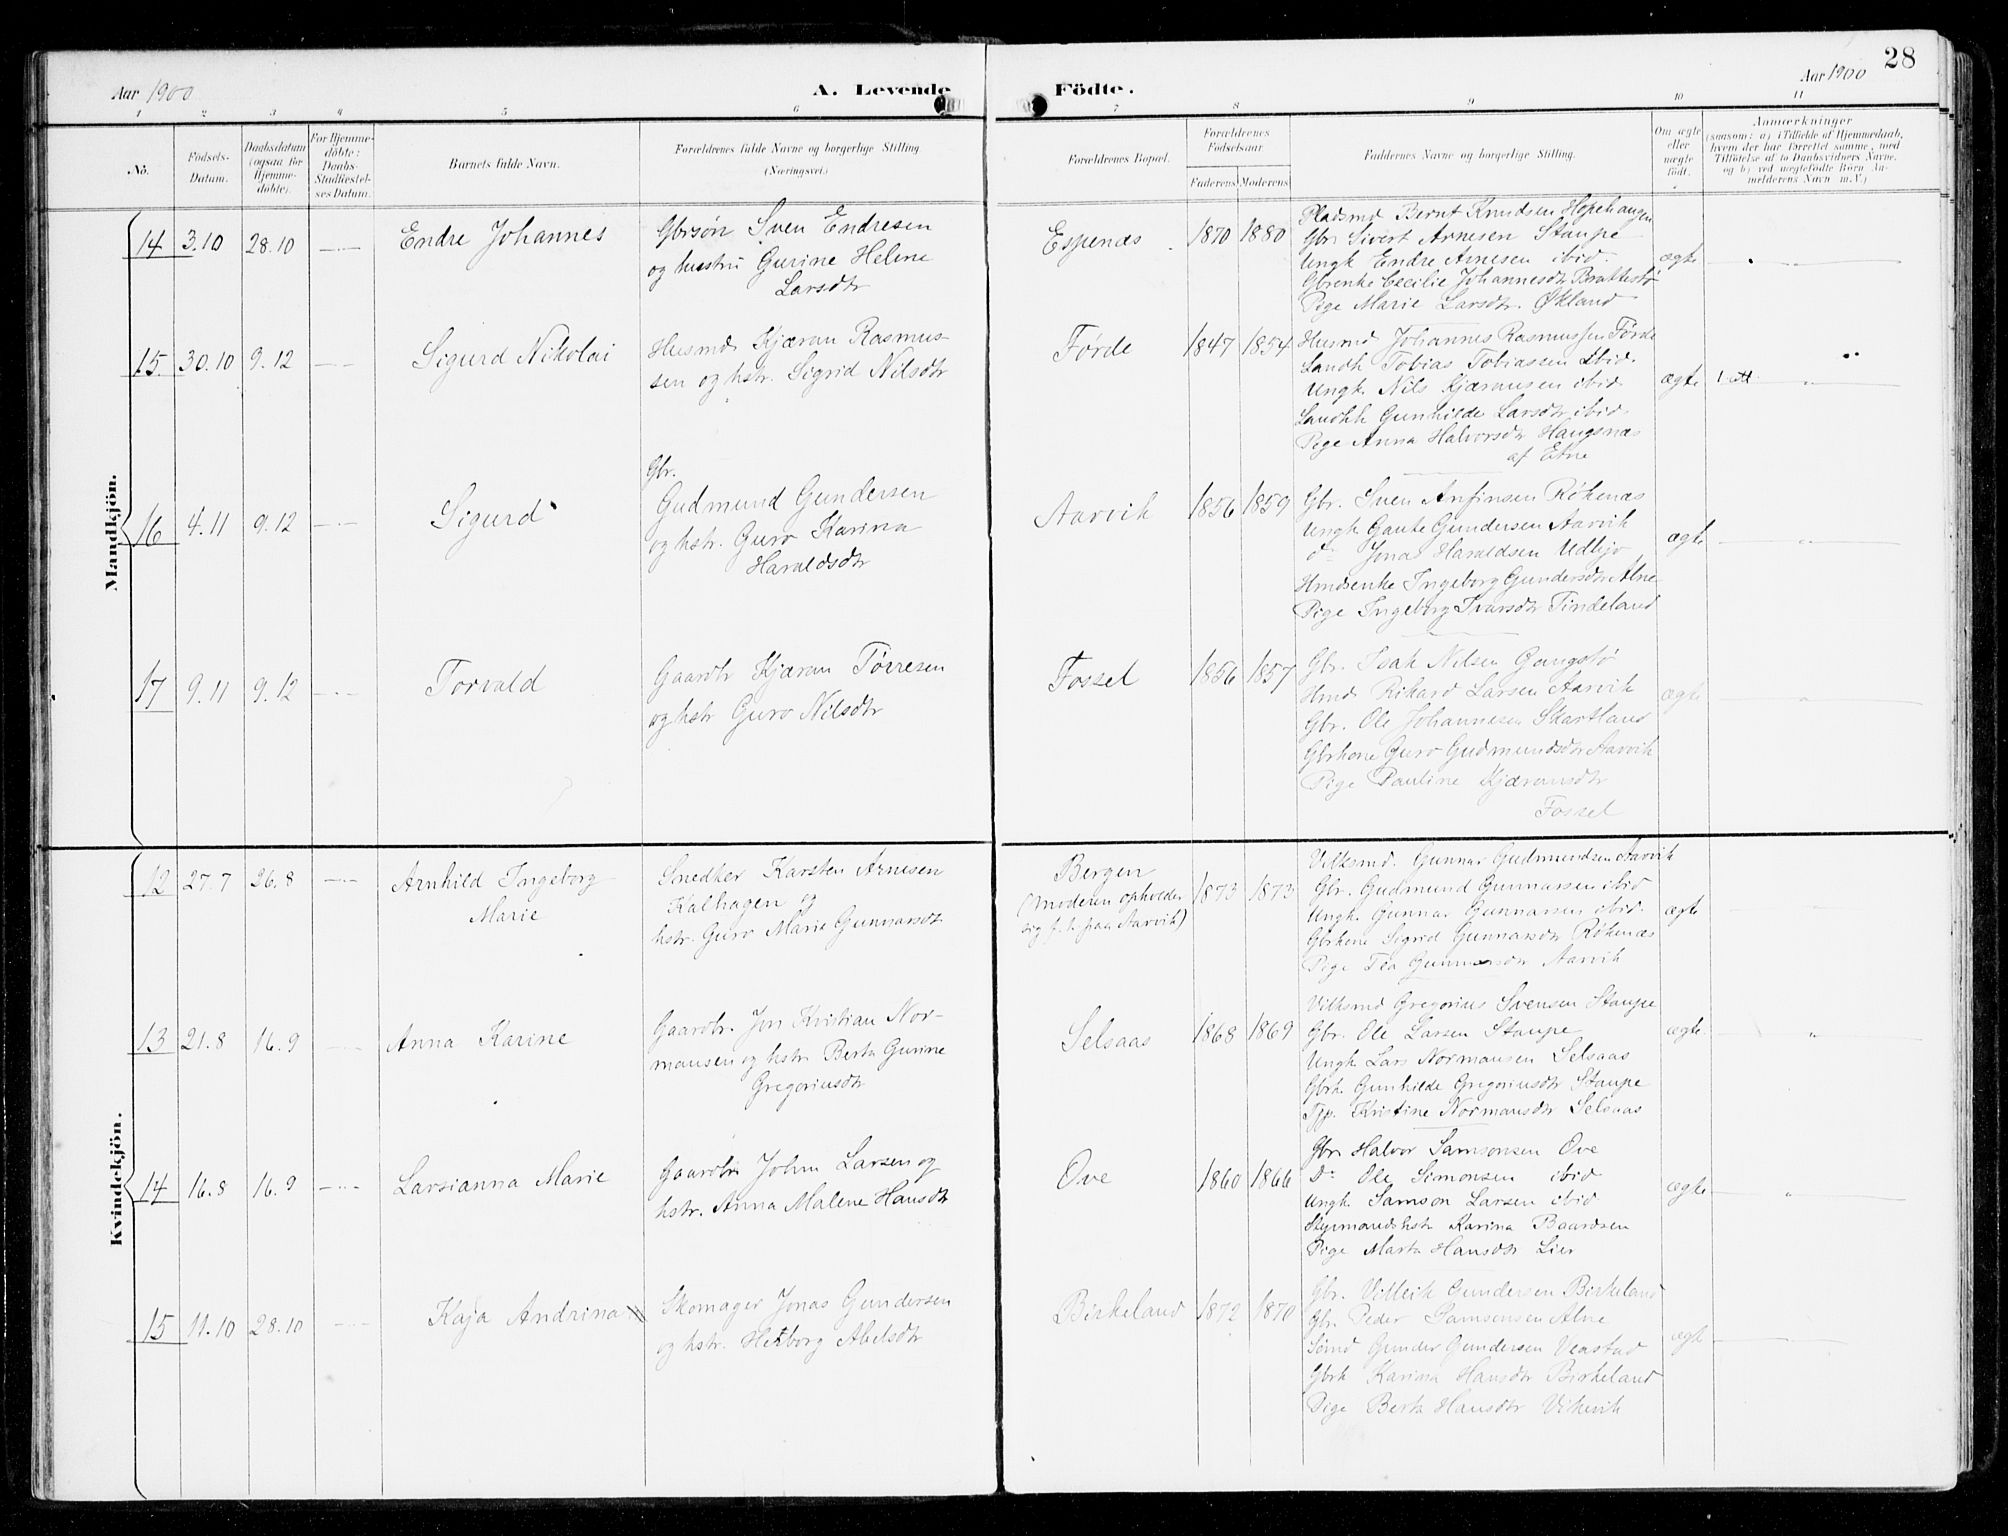 28
Aar 1900 A. Levende Födte. Aar 1900
1 2 3 4 5 6 7 8 9 10 11
No. Födsels-Datum. Daabsdatum (ogsaa for Hjemme-döbte). For Hjemme-döbte: Daabs-Stadfæstel-ses Datum. Barnets fulde Navn. Forældrenes fulde Navne og borgerlige Stilling. (Næringsvei.) Forældrenes Bopæl. Forældrenes Födselsaar. Faderens Moderens Faddernes Navne og borgerlige Stilling. Om ægte eller uægte födt. Anmærkninger (saasom: a) i Tilfælde af Hjemmedaab, hvem der har forrettet samme, med Tilföielse af to Daabsvidners Navne, og b) ved uægtefödte Börn An-melderens Navn m. V.)
Mandkjön.
14 3.10 28.10 Endre Johannes
Gbrsøn Sven Endresen
og hustru Gurine Helene
Larsdtr
Espenæs 1870 1880
Pladsmd Bernt Knudsen Hopehaugen
Gbr. Sivert Arnesen Staupe
Ungk Endre Arnesen ibid.
Gbrenke Cecilie Johannesdtr Brattestø
Pige Marie Larsdtr. Økland
ægte "
15 30.10 9.12 Sigurd Nikolai
Husmd. Kjæran Rasmus-
sen og hstr. Sigrid Nilsdtr
Førde 1847 1854
Husmd Johannes Rasmussen Førde
Landh Tobias Tobiassen Ibid.
Ungk. Nils Kjæransen ibid
Landhk Gunhilde Larsdtr ibid.
Pige Anna Halvorsdtr Haugsnæs
af Etne
ægte "
16 4.11 9.12 Sigurd
Gbr.
Gudmund Gundersen
og hstr. Guro Karina
Haraldsdtr
Aarvik 1856 1859
Gbr. Sven Anfinsen Røkenæs
Ungk Gaute Gundersen Aarvik
do Jonas Haraldsen Udbjo
Hmdsenke Ingeborg Gundersdtr Alne
Pige Ingeborg Ivarsdtr Tindeland
ægte "
17 9.11 9.12 Torvald
Gaardbr Kjæran Tørresen
og hstr Guro Nilsdtr
Fossel 1856 1857
Gbr. Isak Nilsen Gangstø
Hmd. Rikard Larsen Aarvik
Gbr. Ole Johannesen Skartland
Gbrkone Guro Gudmundsdtr Aarvik
Pige Pauline Kjæransdtr
Fossel
ægte "
Kvindekjön.
12 27.7 26.8 Arnhild Ingeborg
Marie
Snedker Karsten Arnesen
Kalhagen og
hstr. Guro Marie Gunnarsdtr
Bergen
(Moderen opholder
sig f. t. paa Aarvik)
1873 1873
Vilksmd. Gunnar Gudmundsen Aarvik
Gbr. Gudmund Gunnarsen ibid
Ungk. Gunnar Gunnarsen ibid.
Gbrkone Sigrid Gunnarsdtr Røkenæs
Pige Tea Gunnarsdtr Aarvik
ægte
13 21.8 16.9 Anna Karine
Gaardbr. Jon Kristian Nor-
mansen og hstr Berta Gurine
Gregoriusdtr
Selsaas 1868 1869
Vilksmd Gregorius Svensen Staupe
Gbr. Ole Larsen Staupe
Ungk Lars Normansen Selsaas
Gbrk. Gunhilde Gregoriusdtr Staupe
Tjp. Kristine Normansdtr Selsaas
ægte. "
14 16.8 16.9 Larsianna Marie
Gaardbr John Larsen og
hstr. Anna Malene Hansdtr
Ove 1860 1866
Gbr Halvor Samsonsen Ove
Do Ole Simonsen ibid
Ungk Samson Larsen ibid
Styrmandshstr Karina Baardsen
Pige Marta Hansdtr Lier
ægte "
15 11.10 28.10 Kaja Andrina
Skomager Jonas Gundersen
og hstr. Herborg Abelsdtr
Birkeland 1872 1870
Gbr. Villeik Gundersen Birkeland
Gbr. Peder Samsonsen Alne
Sømd Gunder Gundersen Veastad
Gbrk Karina Hansdtr Birkeland
Pige Berta Hansdtr Vikevik
ægt